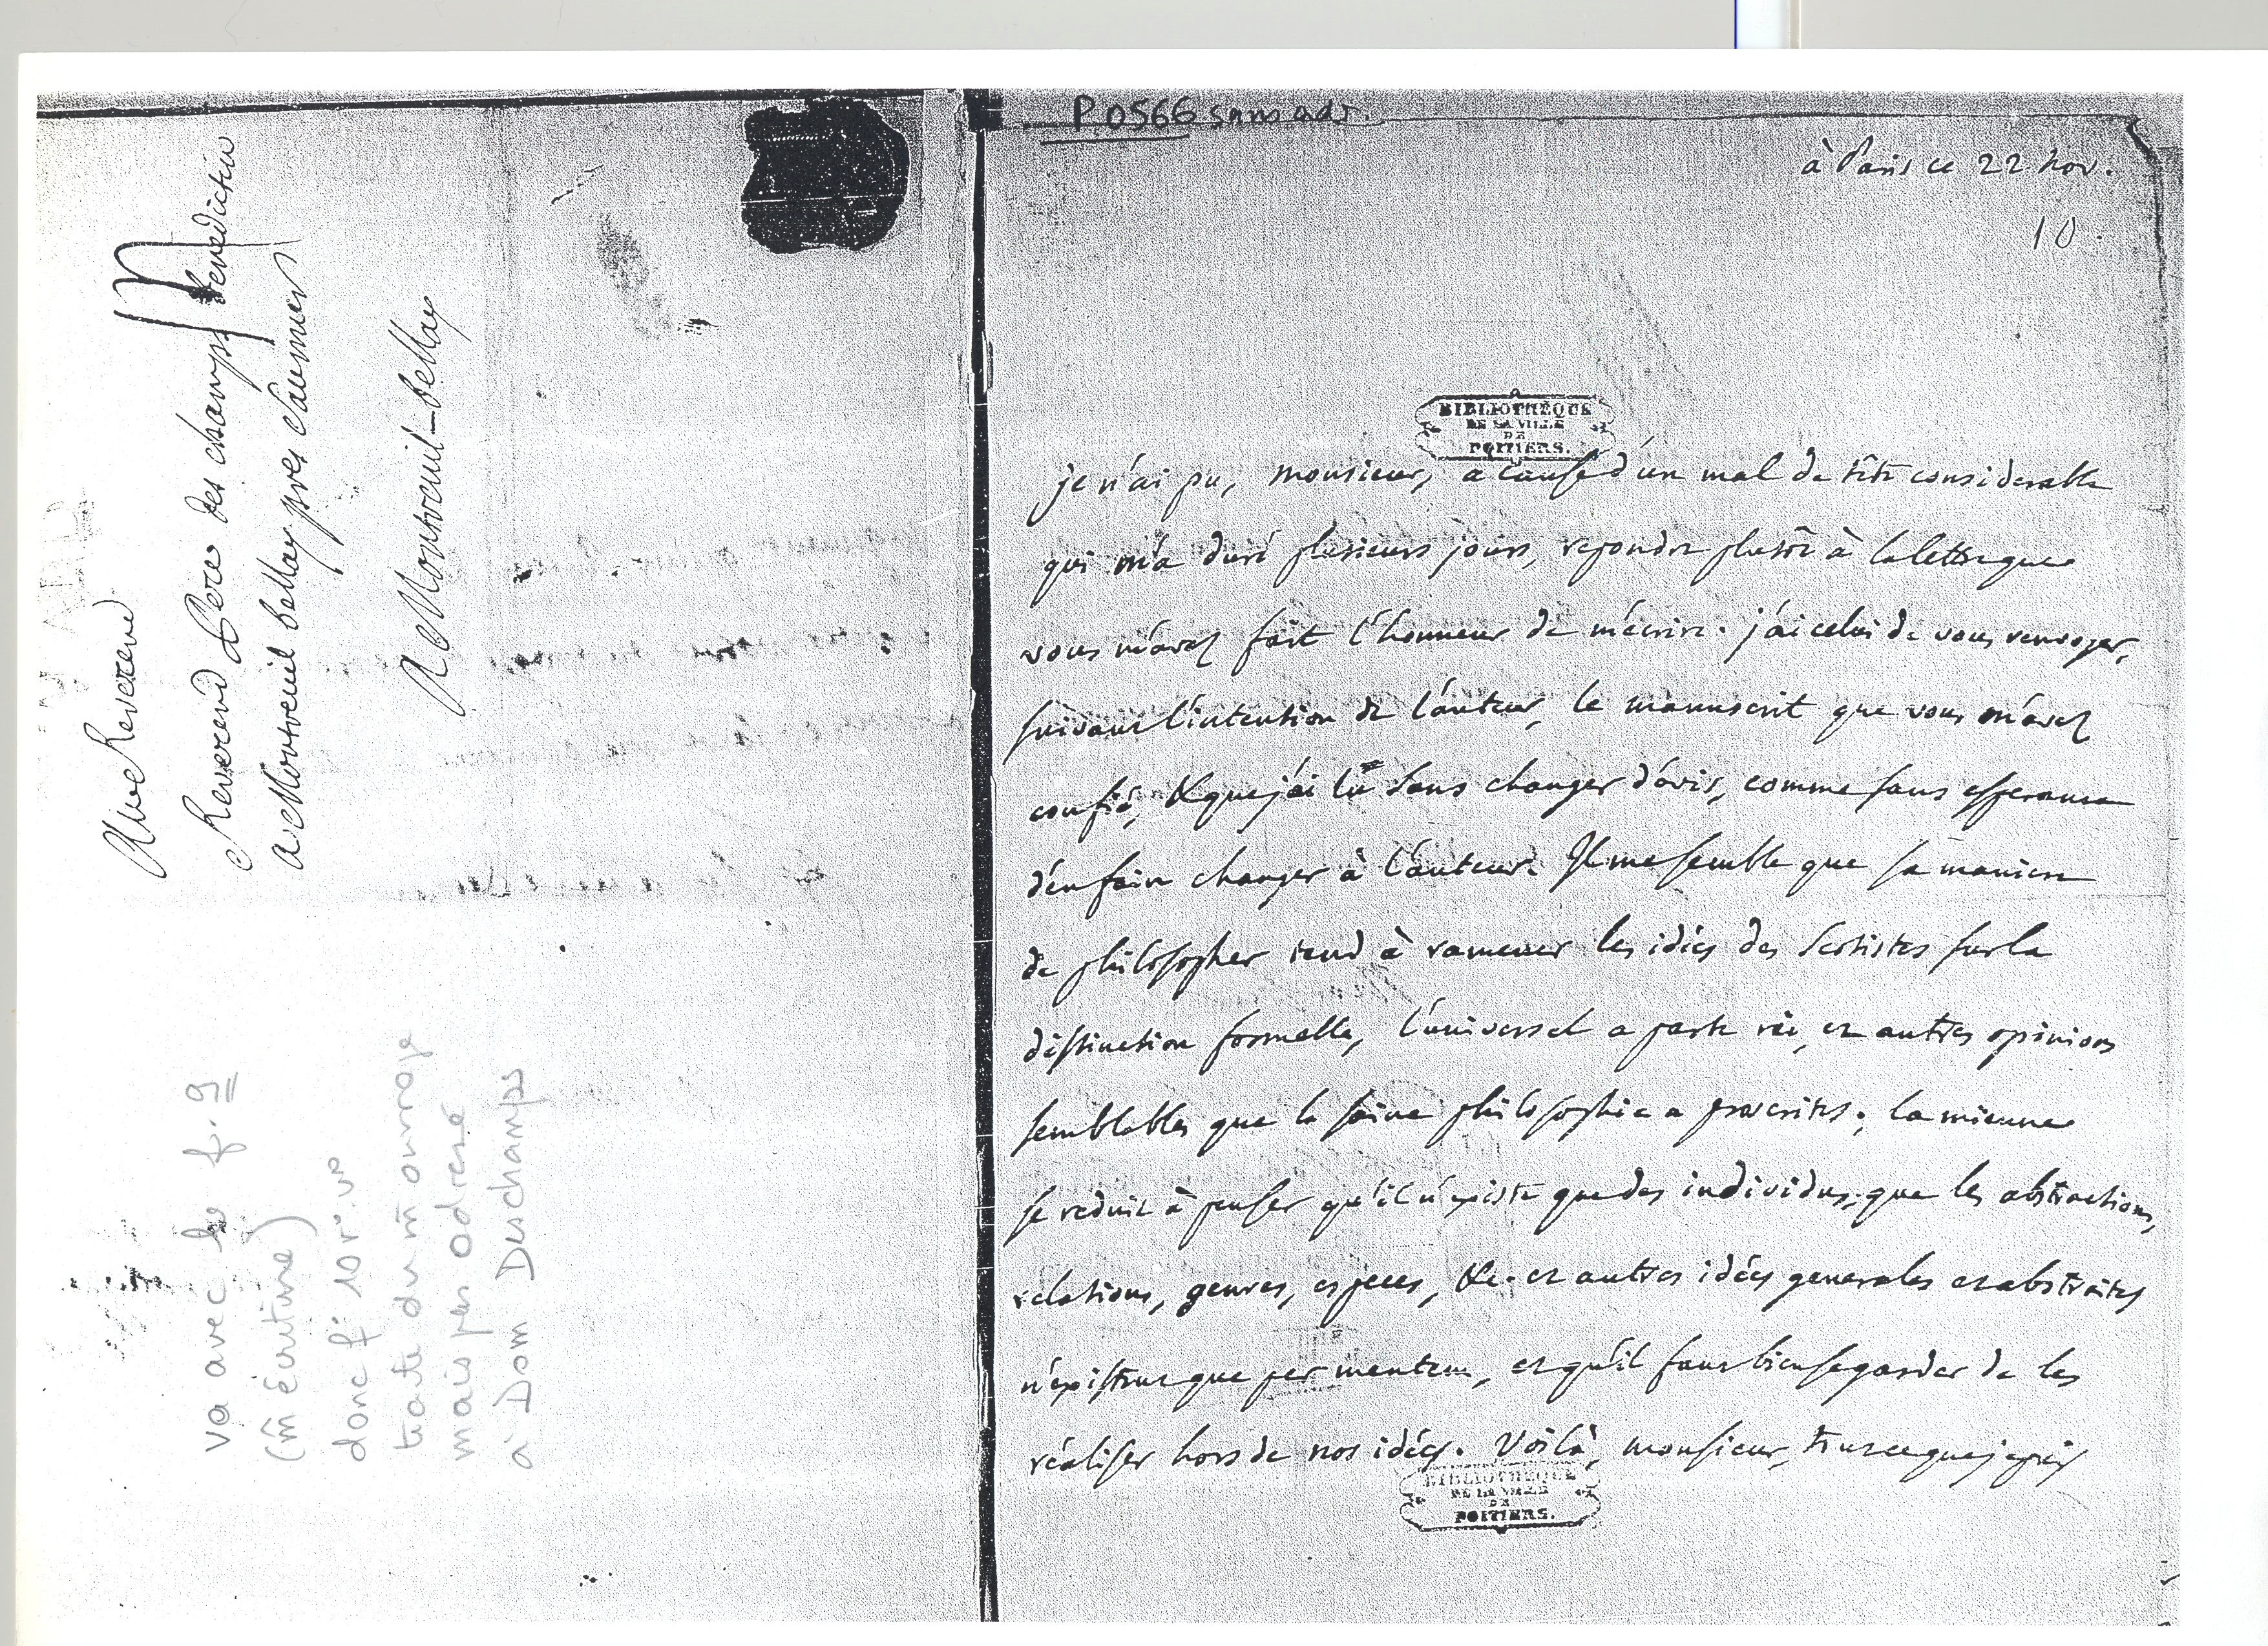 Au Reverend
Reverend Pere des champs Benedictin
a Montreuil bellay pres Saumur
A Montreuil-bellay
va avec le f. 9
(m̂ écriture)
donc f° 10 r°. v°
traite du m̂ ouvrage
mais pas adressé
à Dom Deschamps
P0566 sans adr.
à Paris ce 22 nov.
10.
BIBLIOTHÈQUE
DE LA VILLE
DE
POITIERS.
je n'ai pu, monsieur, a cause d'un mal de tête considerable
qui m'a duré plusieurs jours, repondre plutôt à la lettre que
vous m'avez fait l'honneur de m'écrire. j'ai celui de vous renvoyer,
suivant l'intention de l'auteur, le manuscrit que vous m'avez
confié, & que j'ai lu sans changer d'avis, comme sans esperance
d'en faire changer à l'auteur. Il me semble que sa maniere
de philosopher tend à ramener les idées des Scotistes sur la
distinction formelle, l'universel a parte rei, et autres opinions
semblables que la saine philosophie a proscrites; la mienne
se reduit à penser qu'il n'existe que des individus, que les abstractions,
relations, genres, especes, &c. et autres idées generales et abstraites
n'existent que per mentem, et qu'il faut bien se garder de les
réaliser hors de nos idées. Voilà, monsieur, tout ce que je puis
BIBLIOTHÈQUE
DE LA VILLE
DE
POITIERS.